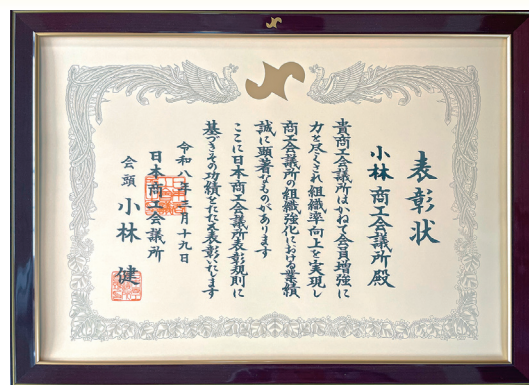 表彰状
小林商工会議所殿
貴商工会議所はかねて会員増強に
力を尽くされ組織率向上を実現し
商工会議所の組織強化における業績
誠に顕著なものがあります
ここに日本商工会議所表彰規則に
基づきその功績をたたえ表彰いたします
令和八年三月十九日
日本商工会議所
会頭 小林 健